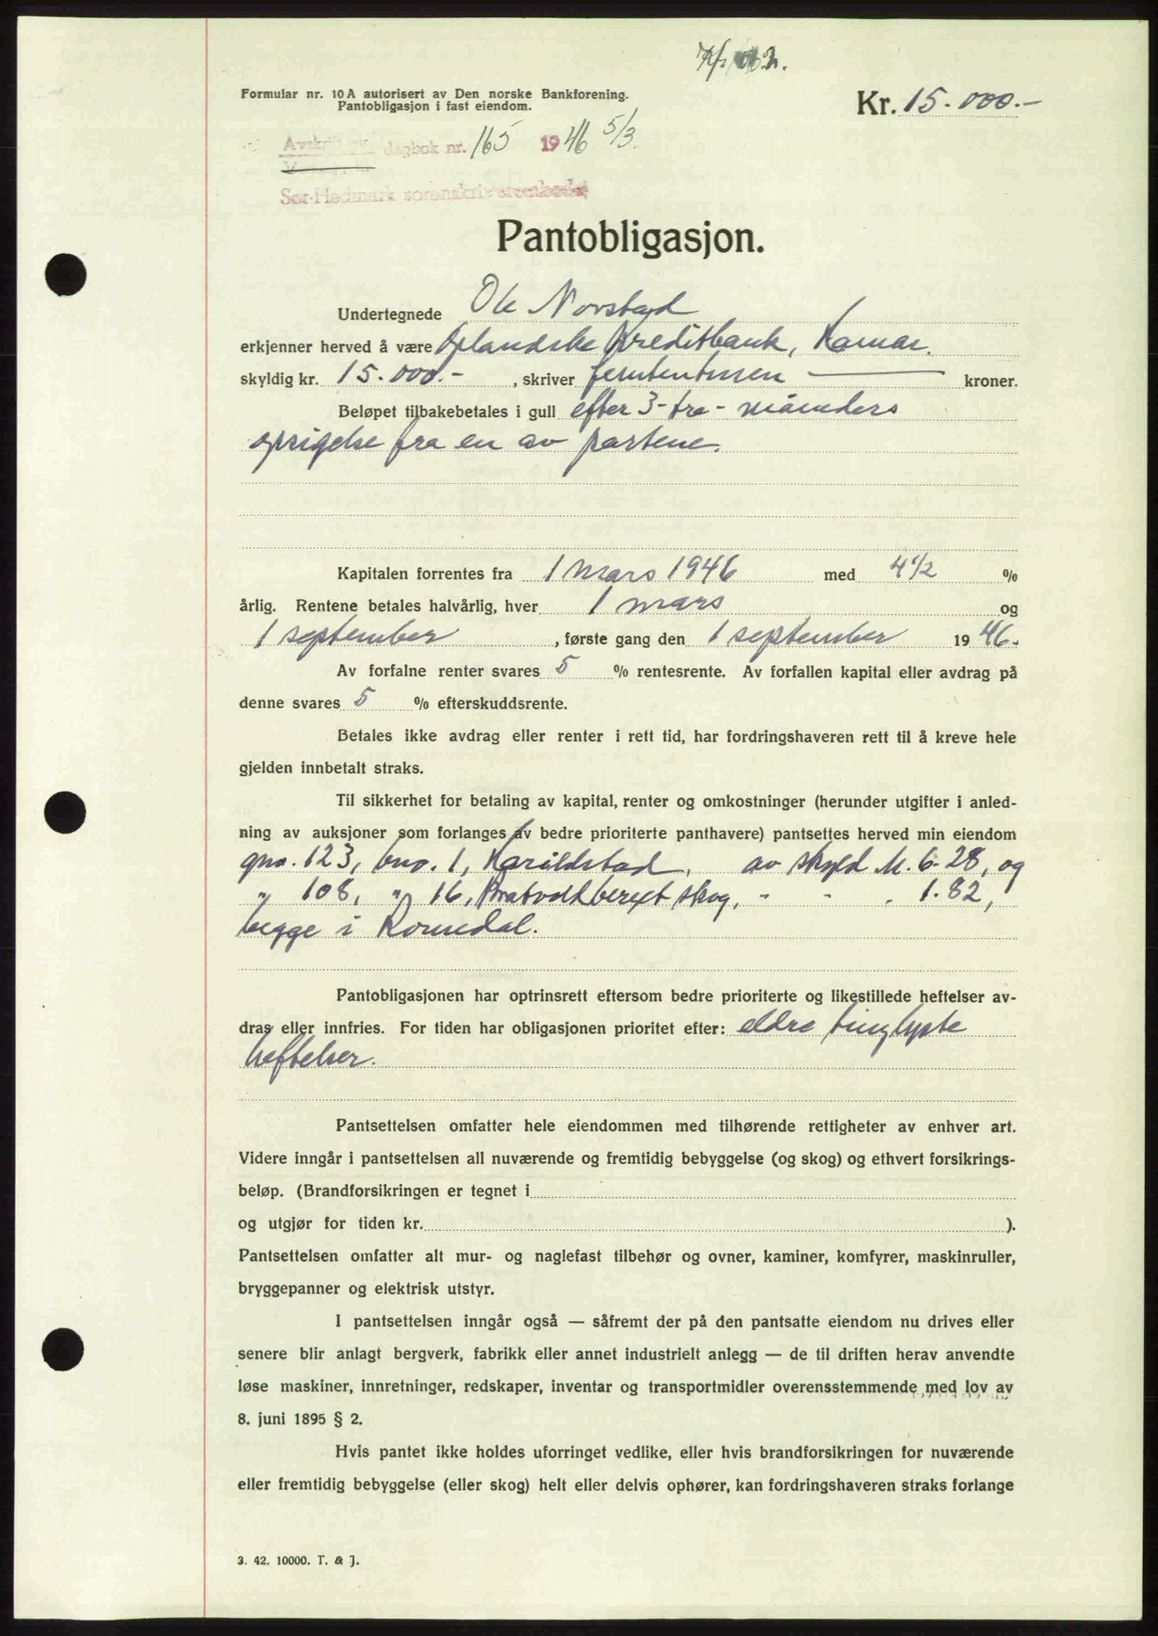 Formular nr. 10A autorisert av Den norske Bankforening.
Pantobligasjon i fast eiendom.
Kr. 15.000.-
dagbok nr. 165 1946 5/3.
Sør-Hedmark sorenskriverembede
Pantobligasjon.
Undertegnede Ole Norstad
erkjenner herved å være Oplandske Kreditbank, Hamar.
skyldig kr. 15.000.- , skriver femtentusen — kroner.
Beløpet tilbakebetales i gull efter 3-tre- måneders
opsigelse fra en av partene.
Kapitalen forrentes fra 1 mars 1946 med 4 1/2 %
årlig. Rentene betales halvårlig, hver 1 mars og
1 september , første gang den 1 september 1946.
Av forfalne renter svares 5 % rentesrente. Av forfallen kapital eller avdrag på
denne svares 5 % efterskuddsrente.
Betales ikke avdrag eller renter i rett tid, har fordringshaveren rett til å kreve hele
gjelden innbetalt straks.
Til sikkerhet for betaling av kapital, renter og omkostninger (herunder utgifter i anled-
ning av auksjoner som forlanges av bedre prioriterte panthavere) pantsettes herved min eiendom
gno. 123, bno. 1, Haraldstad, av skyld M. 6.28, og
" 108, " 16, skog, - - . 1.82,
begge i Romedal.
Pantobligasjonen har optrinsrett eftersom bedre prioriterte og likestillede heftelser av-
dras eller innfries. For tiden har obligasjonen prioritet efter: eldre tinglyste
heftelser.
Pantsettelsen omfatter hele eiendommen med tilhørende rettigheter av enhver art.
Videre inngår i pantsettelsen all nuværende og fremtidig bebyggelse (og skog) og ethvert forsikrings-
beløp. (Brandforsikringen er tegnet i
og utgjør for tiden kr. ).
Pantsettelsen omfatter alt mur- og naglefast tilbehør og ovner, kaminer, komfyrer, maskinruller,
bryggepanner og elektrisk utstyr.
I pantsettelsen inngår også — såfremt der på den pantsatte eiendom nu drives eller
senere blir anlagt bergverk, fabrikk eller annet industrielt anlegg — de til driften herav anvendte
løse maskiner, innretninger, redskaper, inventar og transportmidler overensstemmende med lov av
8. juni 1895 § 2.
Hvis pantet ikke holdes uforringet vedlike, eller hvis brandforsikringen for nuværende
eller fremtidig bebyggelse (eller skog) helt eller delvis ophører, kan fordringshaveren straks forlange
3. 42. 10000. T. & J.